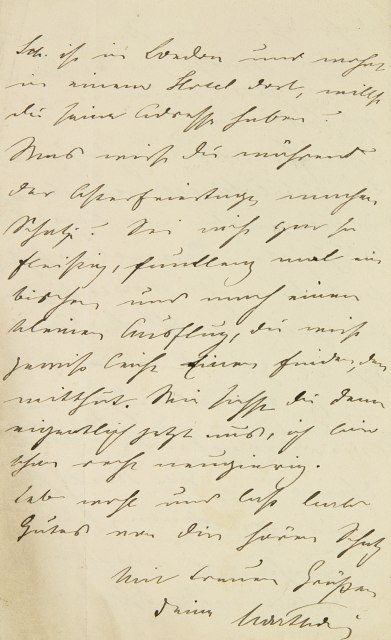 Sch. ist in London und wohnt
in einem Hotel dort, willst
du seine Adresse haben?
Was wirst Du während
der Osterfeiertage machen
Schatz? Sei nicht gar so
fleißig, faullenz mal ein
bischen und mach einen
kleinen Ausflug, du wirst
gewiß leicht Einen finden, der
mitthut. Wie siehst du denn
eigentlich jetzt aus, ich bin
schon recht neugierig.
Leb wohl und laß bald
Gutes von dir hören Schatz
Mit treuen Grüßen
deine